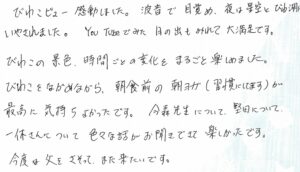 びわこビュー 感動しました。波音で目覚め、夜は星空とびわ湖に
いやされました。You Tubeでみた日の出もみれて大満足です。
びわこの景色、時間ごとの変化をまるごと楽しめました。
びわこをながめながら、朝食前の朝ヨガ(習慣にしてます)が
最高に気持ちよかったです。今森先生について、堅田について、
一休さんについて色々な話がお聞きできて楽しかったです。
今度は父をさそって、また来たいです。